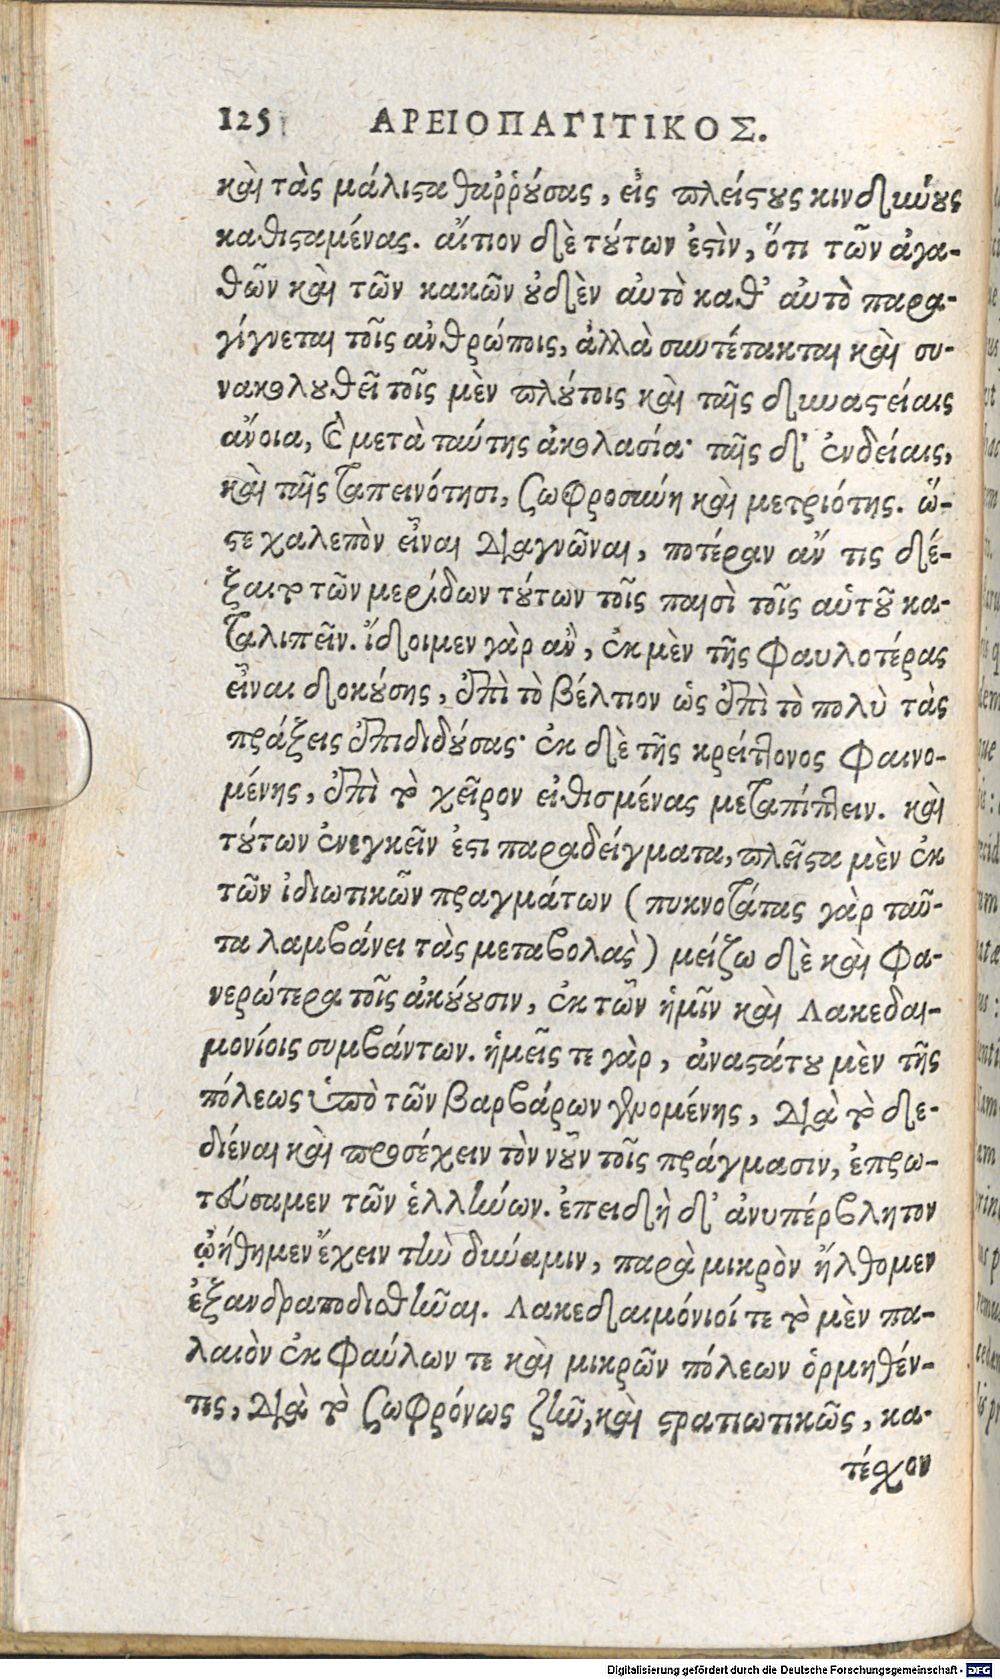 125 ΑΡΕΙΟΠΑΓΙΤΙΚΟΣ.
καὶ τὰς μάλιϛα θαῤῥούσας, εἰς πλείϛους κινδύνους
καθιϛαμένας. αἴτιον δὲ τούτων ἐϛὶν, ὅτι τῶν ἀγα-
θῶν καὶ τῶν κακῶν οὐδὲν αὐτὸ καθ' αὑτὸ παρα-
γίγνεται τοῖς ἀνθρώποις, ἀλλὰ συντέτακται καὶ συ-
νακολουθεῖ τοῖς μὲν πλούτοις καὶ ταῖς δυναϛείαις
ἄνοια, καὶ μετὰ ταύτης ἀκολασία· ταῖς δ' ἐνδείαις,
καὶ ταῖς ταπεινότησι, σωφροσύνη καὶ μετριότης. ὥ-
ϛε χαλεπὸν εἶναι διαγνῶναι, ποτέραν ἄν τις δέ-
ξαιτο τῶν μερίδων τούτων τοῖς παισὶ τοῖς αὑτοῦ κα-
ταλιπεῖν. ἴδοιμεν γὰρ ἂν, ἐκ μὲν τῆς φαυλοτέρας
εἶναι δοκούσης, ἐπὶ τὸ βέλτιον ὡς ἐπὶ τὸ πολὺ τὰς
πράξεις ἐπιδιδούσας· ἐκ δὲ τῆς κρείττονος φαινο-
μένης, ἐπὶ τὸ χεῖρον εἰθισμένας μεταπίπτειν. καὶ
τούτων ἐνεγκεῖν ἔϛι παραδείγματα, πλεῖϛα μὲν ἐκ
τῶν ἰδιωτικῶν πραγμάτων (πυκνοτάτας γὰρ ταῦ-
τα λαμβάνει τὰς μεταβολὰς) μείζω δὲ καὶ φα-
νερώτερα τοῖς ἀκούουσιν, ἐκ τῶν ἡμῖν καὶ Λακεδαι-
μονίοις συμβάντων. ἡμεῖς τε γὰρ, ἀναϛάτου μὲν τῆς
πόλεως ὑπὸ τῶν βαρβάρων γενομένης, διὰ τὸ δε-
διέναι καὶ προσέχειν τὸν νοῦν τοῖς πράγμασιν, ἐπρω-
τεύσαμεν τῶν ἑλλήνων. ἐπειδὴ δ' ἀνυπέρβλητον
ᾠήθημεν ἔχειν τὴν δύναμιν, παρὰ μικρὸν ἤλθομεν
ἐξανδραποδισθῆναι. Λακεδαιμόνιοί τε τὸ μὲν πα-
λαιὸν ἐκ φαύλων τε καὶ μικρῶν πόλεων ὁρμηθέν-
τες, διὰ τὸ σωφρόνως ζῆν, καὶ ϛρατιωτικῶς, κα-
τέσχον
Digitalisierung gefördert durch die Deutsche Forschungsgemeinschaft - DFG